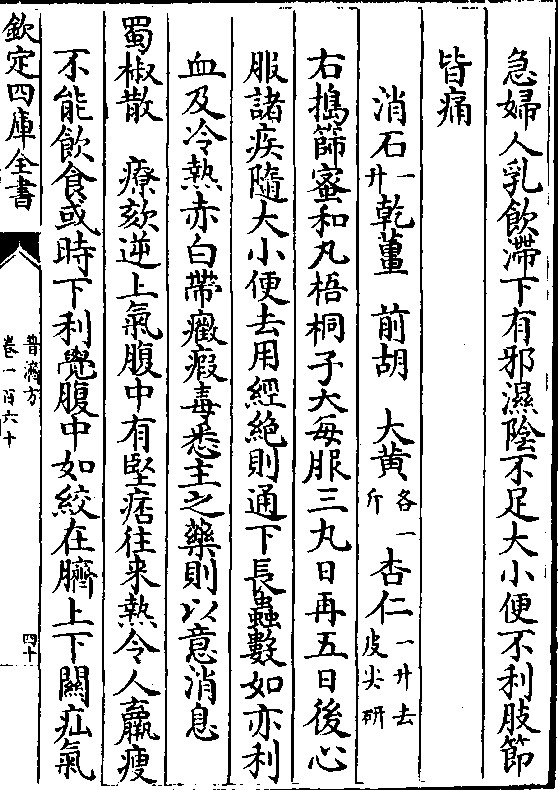 急婦人乳飲滯下有邪濕陰不足大小便不利肢節
皆痛
消石一升乾薑 前胡 大黄各一斤 杏仁一升去皮尖研
右搗篩蜜和丸梧桐子大每服三丸日再五日後心
服諸疾隨大小便去用經絶則通下長蟲數如亦利
血及冷熱赤白帶癥瘕毒悉主之藥則以意消息
蜀椒散 療欬逆上氣腹中有堅痞往来熱令人羸瘦
不能飲食或時下利覺腹中如絞在臍上下關疝氣
欽定四庫全書
普濟方
卷一百六十
四十